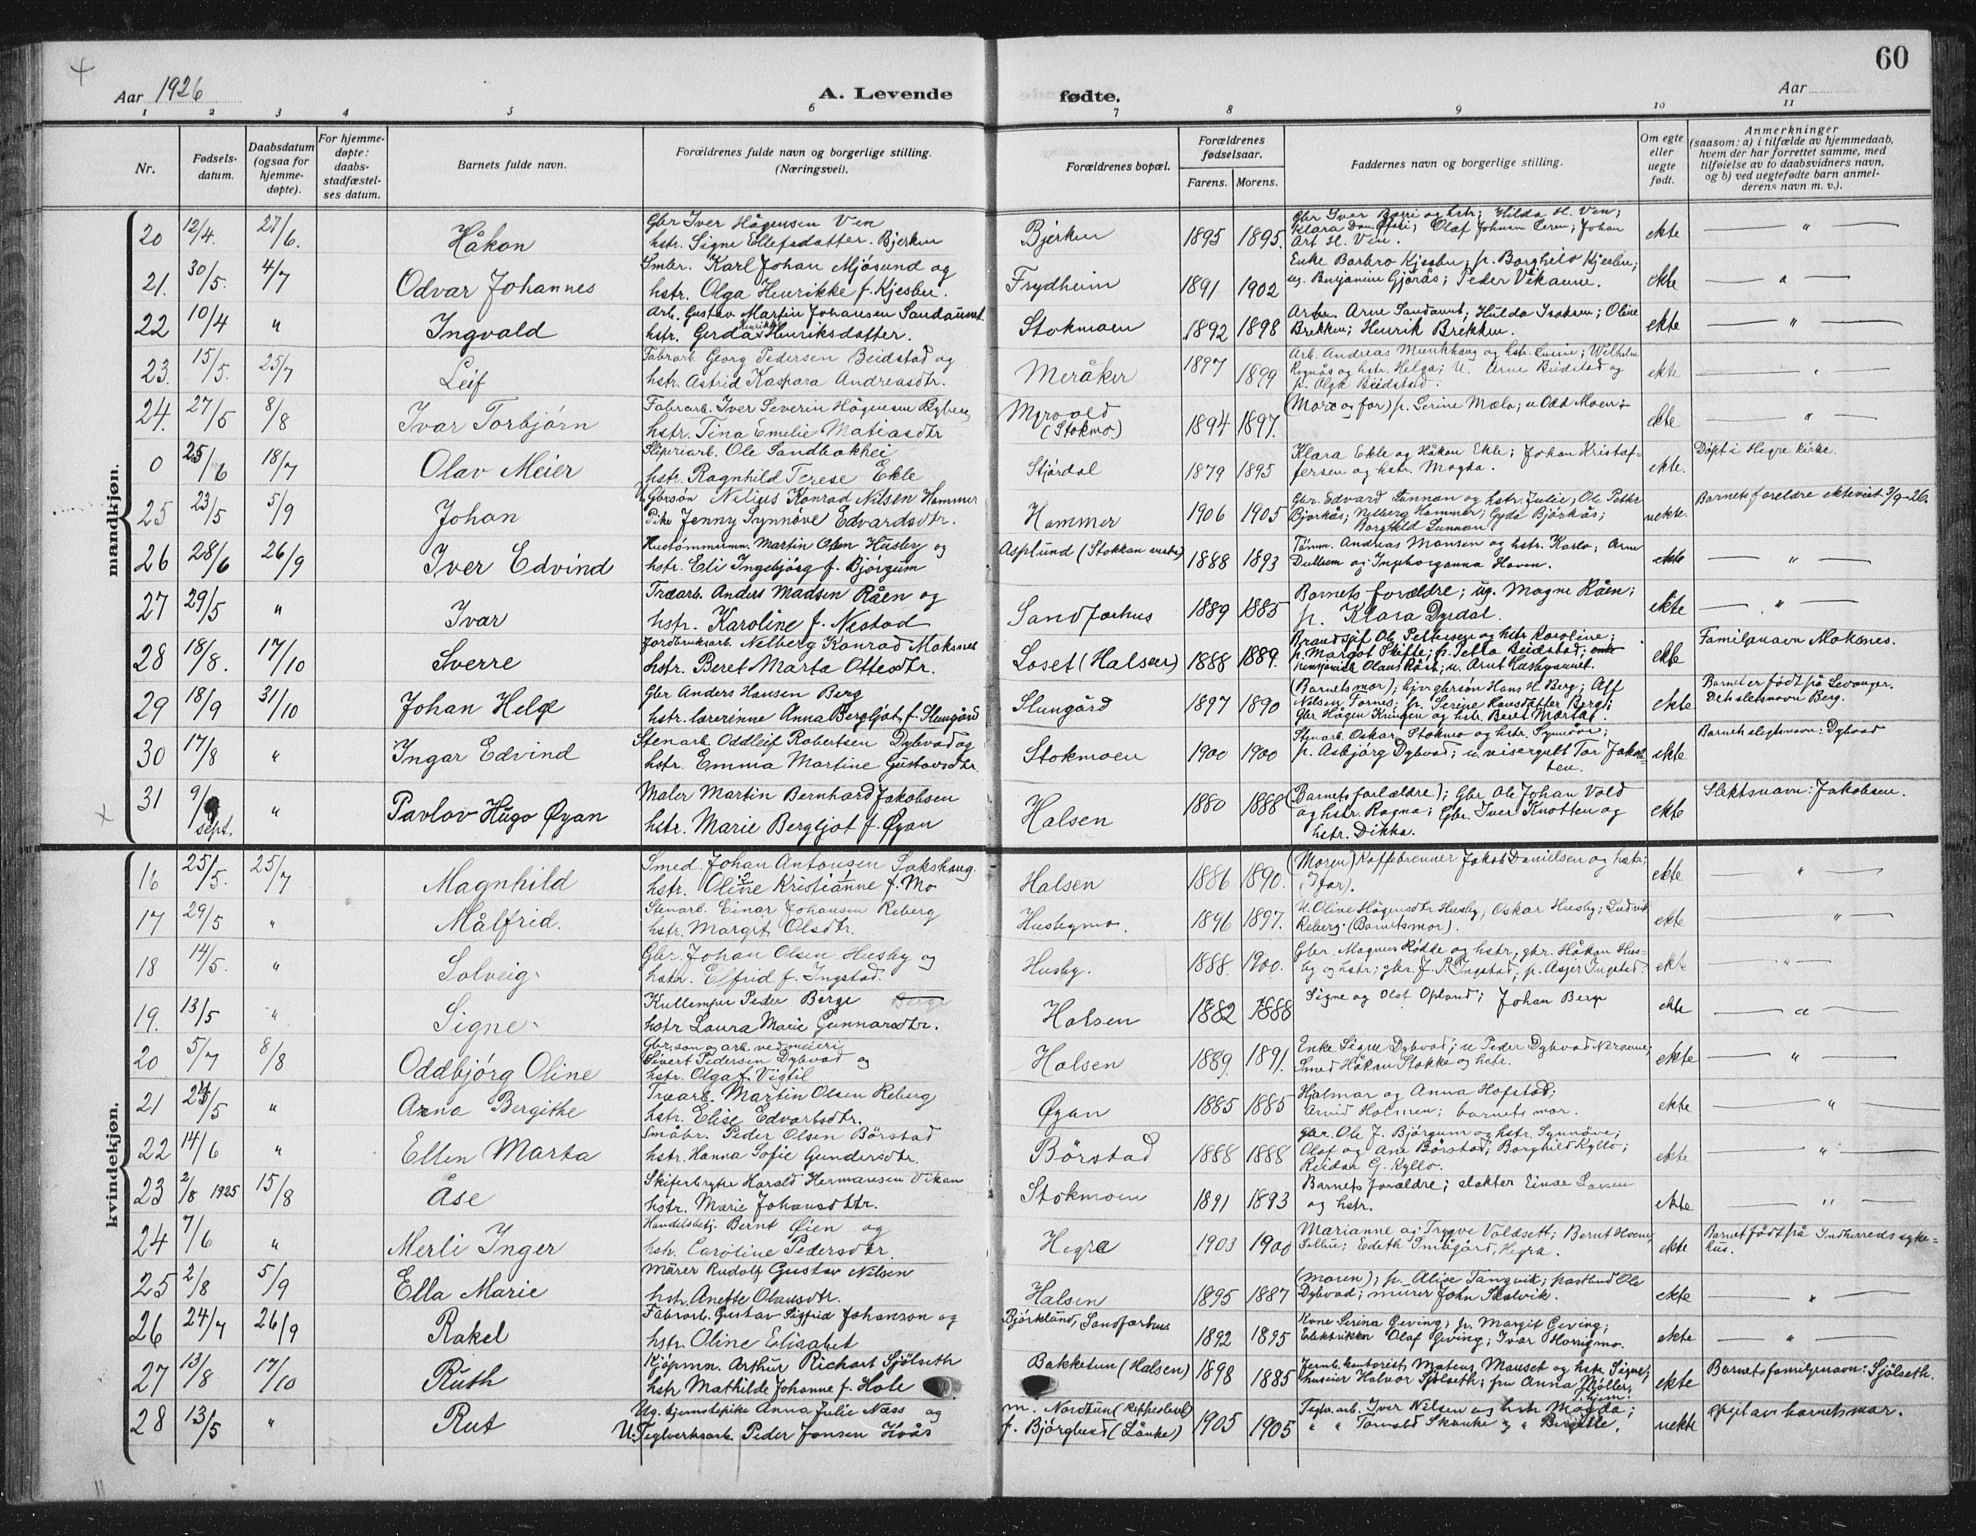 60
Aar 1926
A. Levende
fødte.
Aar
1 2 3 4 5 6 7 8 9 10 11
Nr.
Fødsels-
datum.
Daabsdatum
(ogsaa for
hjemme-
døpte).
For hjemme-
døpte:
daabs-
stadfæstel-
ses datum.
Barnets fulde navn.
Forældrenes fulde navn og borgerlige stilling.
(Næringsvei).
Forældrenes bopæl.
Forældrenes
fødselsaar.
Farens. Morens.
Faddernes navn og borgerlige stilling.
Om egte
eller
uegte
født.
Anmerkninger
(saasom: a) i tilfælde av hjemmedaab,
hvem der har forrettet samme, med
tilføielse av to daabsvidners navn,
og b) ved uegtefødte barn anmel-
derens navn m. v.).
mandkjøn.
20 12/4. 27/6. Håkon
Gbr Iver Hågensen Ven
hstr. Signe Ellefsdatter. Bjerken
Bjerken 1895 1895.
ekte
21. 30/5. 4/7 Odvar Johannes
Smbr. Karl Johan Mjøsund og
hstr. Olga Henrikke f. Kjesbu.
Frydheim 1891 1902
Enke Barbro Kjesbu; p. Borghild Kjesbu;
ug. Benjamin Gjørås; Peder Vikanne.
ekte
22 10/4 " Ingvald
Arb. Gustav Martin Johansen Sandaunet
hstr. Gerda Henrikke Henriksdatter.
Stokmoen 1892 1898
Arbr. Arne Sandaunet; Hulda Isaksen; Oline
Brekken; Henrik Brekken.
ekte
23. 15/5. 25/7 Leif
Fabrarb. Georg Pedersen Beidstad og
hstr. Astrid Kaspara Andreasdtr.
Meråker 1897 1899
Arb. Andreas Munkhaug og hstr.
p. Olga Beidstad.
ekte
24. 27/5 8/8 Ivar Torbjørn
Fabrarb. Iver Severin Hågensen
hstr. Tina Emelie Matiasdtr
Myrvold
(Stokmo)
1894 1897.
(Mor og far) p. Serine Mælo; u Odd Moen
ekte
0 25/6 18/7 Olav Meier
Sliperiarb. Ole Sandbakhei
hstr. Ragnhild Terese Ekle
Stjørdal 1879 1895
Klara Ekle og Håkon Ekle; Johan Kristof-
fersen og hstr. Magda.
ekte.
Døpt i Hegre kirke.
25 23/5 5/9 Johan
Gbrsøn Nilius Konrad Nilsen Hammer
Pike Jenny Synnøve Edvardsdtr.
Hammer 1906 1905
Gbr. Edvard Sannan og hstr. Julie; Ole Petter
Bjørkås; Nylberg Hammer; Gyda Bjørkås;
Borghild Sannan
uekte.
Barnets foreldre ektevist 3/9-26.
26 28/6 26/9 Iver Edvind
Hustømmermn. Martin Olsen Husby og
hstr. Eli Ingebjørg f. Bjørgum
Asplund (Stokkan) 1888 1893
Tømm. Andreas Monsen og hstr. Karla; Arne
Dullum og Ingeborganna Haven.
ekte
27 29/5 " Ivar
Træarb. Anders Madsen Råen og
hstr. Karoline f. Nestad
Sandfærhus 1889 1885
Barnets forældre; ug. Magne Råen;
p. Klara Dyrdal.
ekte
28 18/8. 17/10 Sverre
Jordbruksarb. Nelberg Konrad Moksnes
hstr. Beret Marta Ottesdtr.
Loset (Halsen) 1888 1889.
Brandsjef Ole Pettersen og hstr Karoline;
p. Margot Skifte; p. Petra Beidstad;
ekte
Familjenavn Moksnes.
29 18/9 31/10 Johan Helge
Gbr Anders Hansen Berg
hstr. lærerinne Anna Bergljot f. Slungård
Slungård 1897 1890
(Barnets mor); hjvr gbrsøn Hans H. Berg; Alf
Nilsen Tornes; p. Serine Larsdatter Berg;
Gbr Hågen Kringen og hstr. Beret Marta.
ekte
Barnet er født på Levanger.
Dets slektsnavn Berg.
30 17/8 " Ingar Edvind
Stenarb. Oddleif Robertsen Dybvad og
hstr. Emma Martine Gustavsdtr.
Stokmoen 1900 1900
Stenarb. Oskar Stokmo og hstr. Synnøve;
p. Asbjørg Dybvad; u. visergutt Tor Jakob-
sen.
ekte
Barnets slegtsnavn: Dybvad
31 9/9 sept. " Pavlov Hugo Øyan
Maler Martin Bernhard Jakobsen
hstr. Marie Bergljot f. Øyan
Halsen 1880 1888
(Barnets forældre); Gbr. Ole Johan Vold
og hstr. Ragna; Gbr. Iver Knotten og
hstr. Dikka.
ekte
Slektsnavn: Jakobsen.
kvindekjøn.
16 25/5. 25/7 Magnhild
Smed. Johan Antonsen Sakshaug
hstr. Oline Kristianne f. Mo
Halsen 1886 1890.
(Moren) Kaffebrenner Jakob Danielsen og hstr;
ekte
17 29/5 " Målfrid.
Stenarb. Einar Johansen Reberg
hstr. Margit Olsdtr.
Husbymo. 1896 1897.
U. Olive Hågensdtr Husby; Oskar Husby; Ludvik
Reberg. (Barnets mor).
ekte
18 14/5. " Solveig
Gbr. Johan Olsen Husby og
hstr. Elfrid f. Ingstad.
Husby. 1888. 1900.
Gbr. Magnus Rødde og hstr; gbr. Håkon Hus-
by og hstr; gbr. J. P. Ingstad; p. Asjer Ingstad.
ekte
19. 13/5 " Signe
Kullemper Peder Berge
hstr Laura Marie Gunnarsdtr.
Halsen 1882 1888
Signe og Olaf Opland; Johan Berge
ekte
20 5/7 8/8 Oddbjørg Oline
Gbr. søn og arb. ved meieri
Sivert Pedersen Dybvad og
hstr. Olga f. Vigtil
Halsen 1889. 1891.
Enke Signe Dybvad; u Peder Dybvad
Smed Håkon Stokke og hstr.
ekte
21 25/5 " Anna Bergithe
Træarb. Martin Olsen Reberg
hstr. Elise Edvartsdtr.
Øyan 1885 1885
Hjalmar og Anna Hofstad;
Arvid Holmen; barnets mor.
ekte
22 14/6 " Ellen Marta
Småbr. Peder Olsen Børstad
hstr. Hanna Sofie Gundersdtr.
Børstad 1888 1888
gbr. Ole J. Bjørgum og hstr. Synnøve;
Olaf og Ane Børstad; Borghild Kyllo;
Reidar G. Kyllo.
ekte
23 2/8 1925 15/8 Åse
Skiferbryter Harald Hermansen Vikan
hstr. Marie Johansdtr.
Stokmoen 1891 1893
Barnets forældre; slakter Einar Larsen
og hstr.
ekte
24 7/6 " Merli Inger
Handelsbetj. Bernt Øien og
hstr. Caroline Pedersdtr.
Hegra 1903 1900
Marianne og Trygve Voldseth; Bernt Hoem,
Selbu; Edith Smågård, Hegra.
ekte
Barnet født på Indherreds syke-
hus.
25 2/8 5/9 Ella Marie
Murer Rudolf Gustav Nilsen
hstr. Anette Olausdtr.
Halsen 1895 1887
(Moren); p. Alise Tangvik; postbud Ole
Dybvad; murer John Skalvik.
ekte
26 24/7 26/9 Rakel
Fabrarb. Gustav Sigfrid Johanson og
hstr. Oline Elisabet
Bjørklund, Sandfærhus 1892 1895
Kone Serina Geving; p. Margit Geving;
Elektriker Olaf Geving; Ivar Horrigmo.
ekte
27 13/8 17/10 Ruth
Kjøpmn. Arthur Richart Sjølseth
hstr Mathilde Johanne f. Hole
Bakketun (Halsen) 1898 1885
Jernb. kontorist Mateus Mauset og hstr Signe;
huseier Halvor Sjølseth; fru Anna Møller,
Thjem.
ekte
Barnets familjenavn: Sjølseth.
28 13/5 " Rut
Ug. tjenestepike Anna Julie Næss og
U. Teglverksarb. Peder Jansen Kvås
m. Nordtun
f. Bjørglund (Lånke)
1905 1905
Teglv. arb. Iver Nilsen og hstr Magda;
" " Tomeld Skanke " " Bergitte.
uekte
opgit av barnets mor.